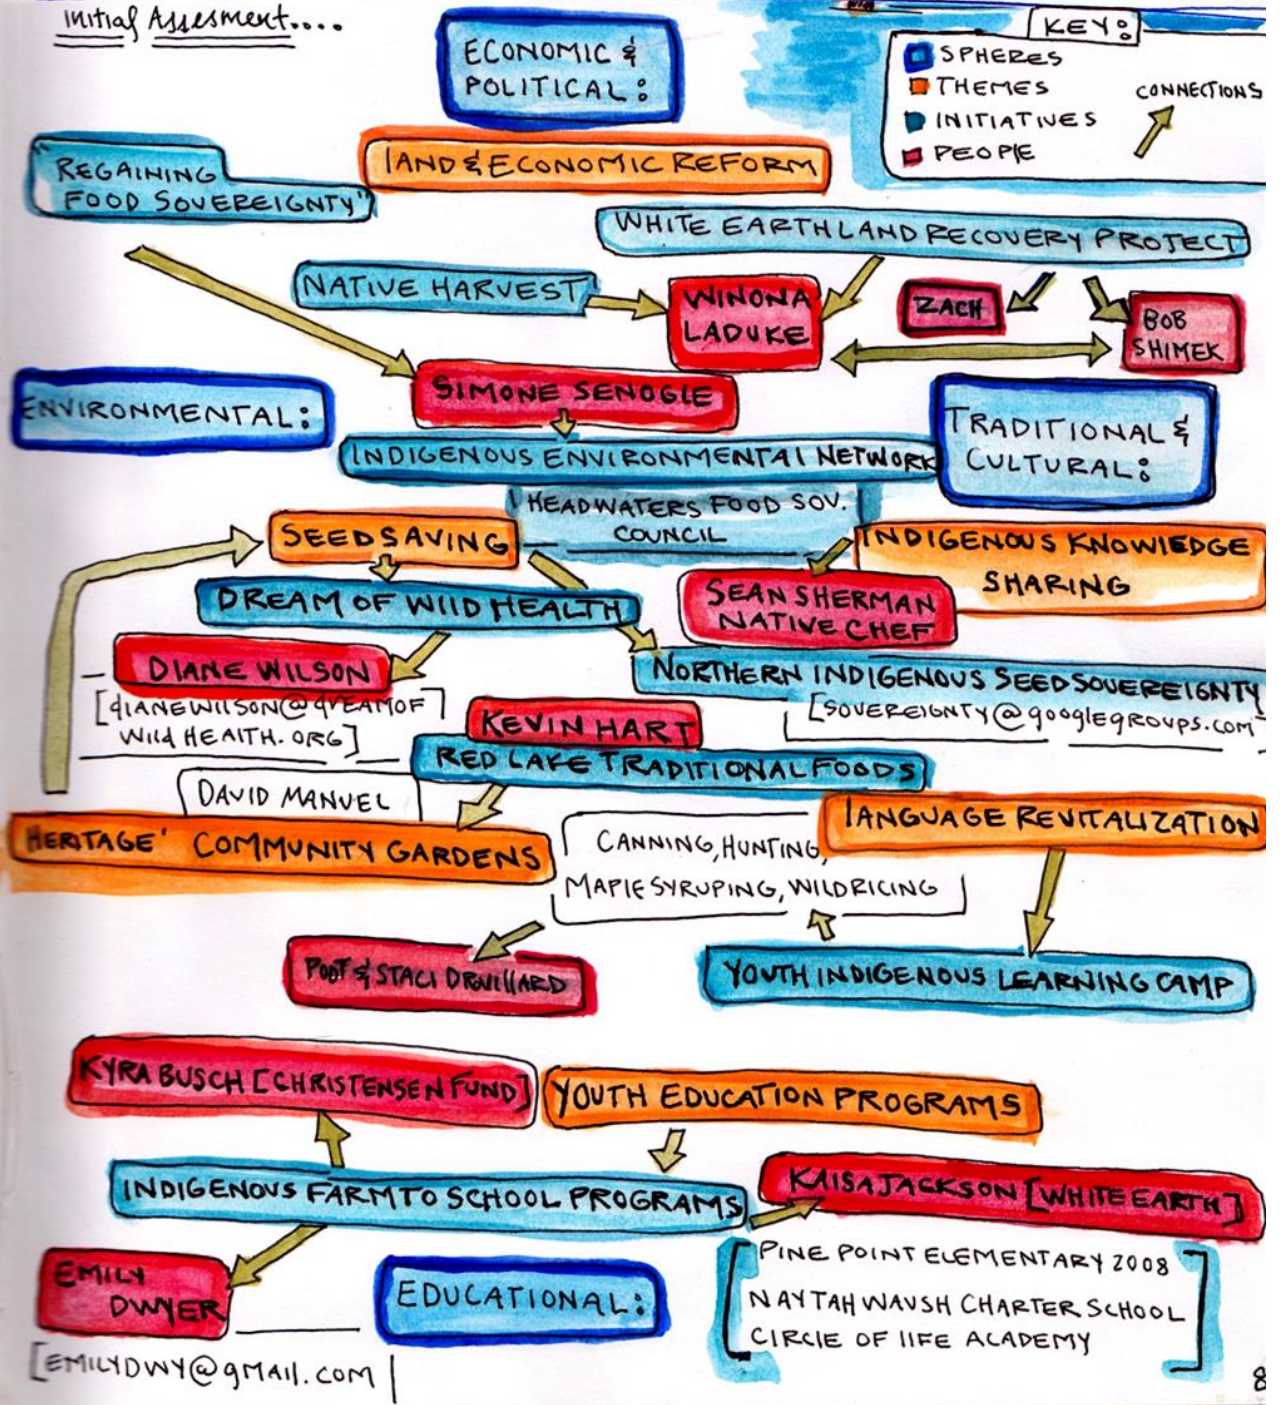 initial Assesment....
KEY:
SPHERES
THEMES
INITIATIVES
PEOPLE
CONNECTIONS
ECONOMIC &
POLITICAL:
LAND & ECONOMIC REFORM
"REGAINING
FOOD SOVEREIGNTY"
WHITE EARTH LAND RECOVERY PROJECT
NATIVE HARVEST
WINONA
LADUKE
ZACH
BOB
SHIMEK
SIMONE SENOGLE
ENVIRONMENTAL:
TRADITIONAL &
CULTURAL:
INDIGENOUS ENVIRONMENTAL NETWORK
HEADWATERS FOOD SOV.
COUNCIL
SEED SAVING
INDIGENOUS KNOWLEDGE
SHARING
DREAM OF WILD HEALTH
SEAN SHERMAN
NATIVE CHEF
DIANE WILSON
[DIANEWILSON@DREAMOF
WILD HEALTH.ORG]
NORTHERN INDIGENOUS SEED SOVEREIGNTY
[SOVEREIGNTY@googlegroups.com
KEVIN HART
RED LAKE TRADITIONAL FOODS
DAVID MANUEL
HERITAGE' COMMUNITY GARDENS
LANGUAGE REVITALIZATION
CANNING, HUNTING,
MAPLE SYRUPING, WILDRICING
POOT & STACI DROUILLARD
YOUTH INDIGENOUS LEARNING CAMP
KYRA BUSCH [CHRISTENSEN FUND]
YOUTH EDUCATION PROGRAMS
INDIGENOUS FARM TO SCHOOL PROGRAMS
KAISA JACKSON [WHITE EARTH]
EMILY
DWYER
[EMILYDWY@gmail.com
EDUCATIONAL:
PINE POINT ELEMENTARY 2008
NAYTAHWAUSH CHARTER SCHOOL
CIRCLE OF LIFE ACADEMY
8